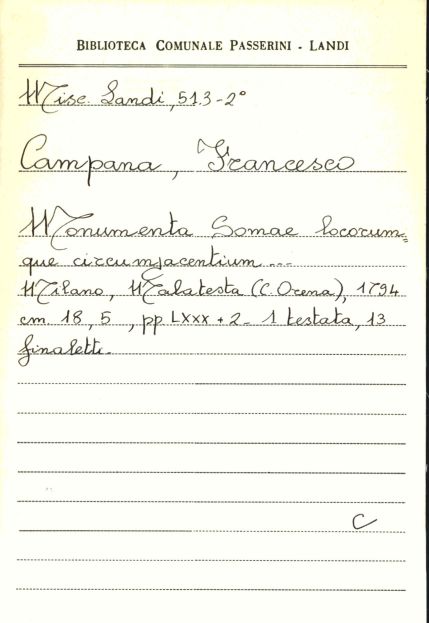 BIBLIOTECA COMUNALE PASSERINI - LANDI
Misc. Landi, 513-2°
Campana, Francesco
Monumenta Somae locorum=
que circumjacentium...
Milano, Malatesta (C. Orena), 1794
cm. 18,5, pp LXXX + 2 - 1 testata, 13
finaletti.
C